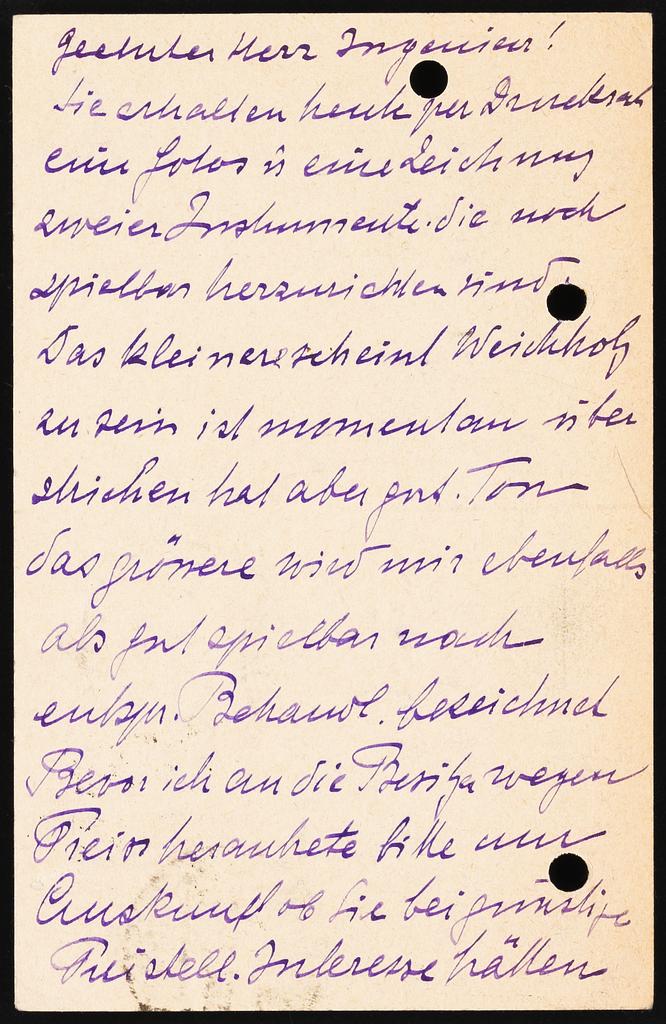 Geehrter Herr Ingenieur!
Sie erhalten heute per Drucksach
eine Fotos u eine Zeichnung
zweier Instrumente. die noch
spielbar herzurichten sind.
Das kleinere scheint Weichholz
zu sein ist momentan über
strichen hat aber gut. Ton
das grössere wird mir ebenfalls
als gut spielbar nach
entspr. Behandl. bezeichnet
Bevor ich an die Besitzer wegen
Preis herantrete bitte um
Auskunft ob Sie bei günstige
Preistell. Interesse hätten